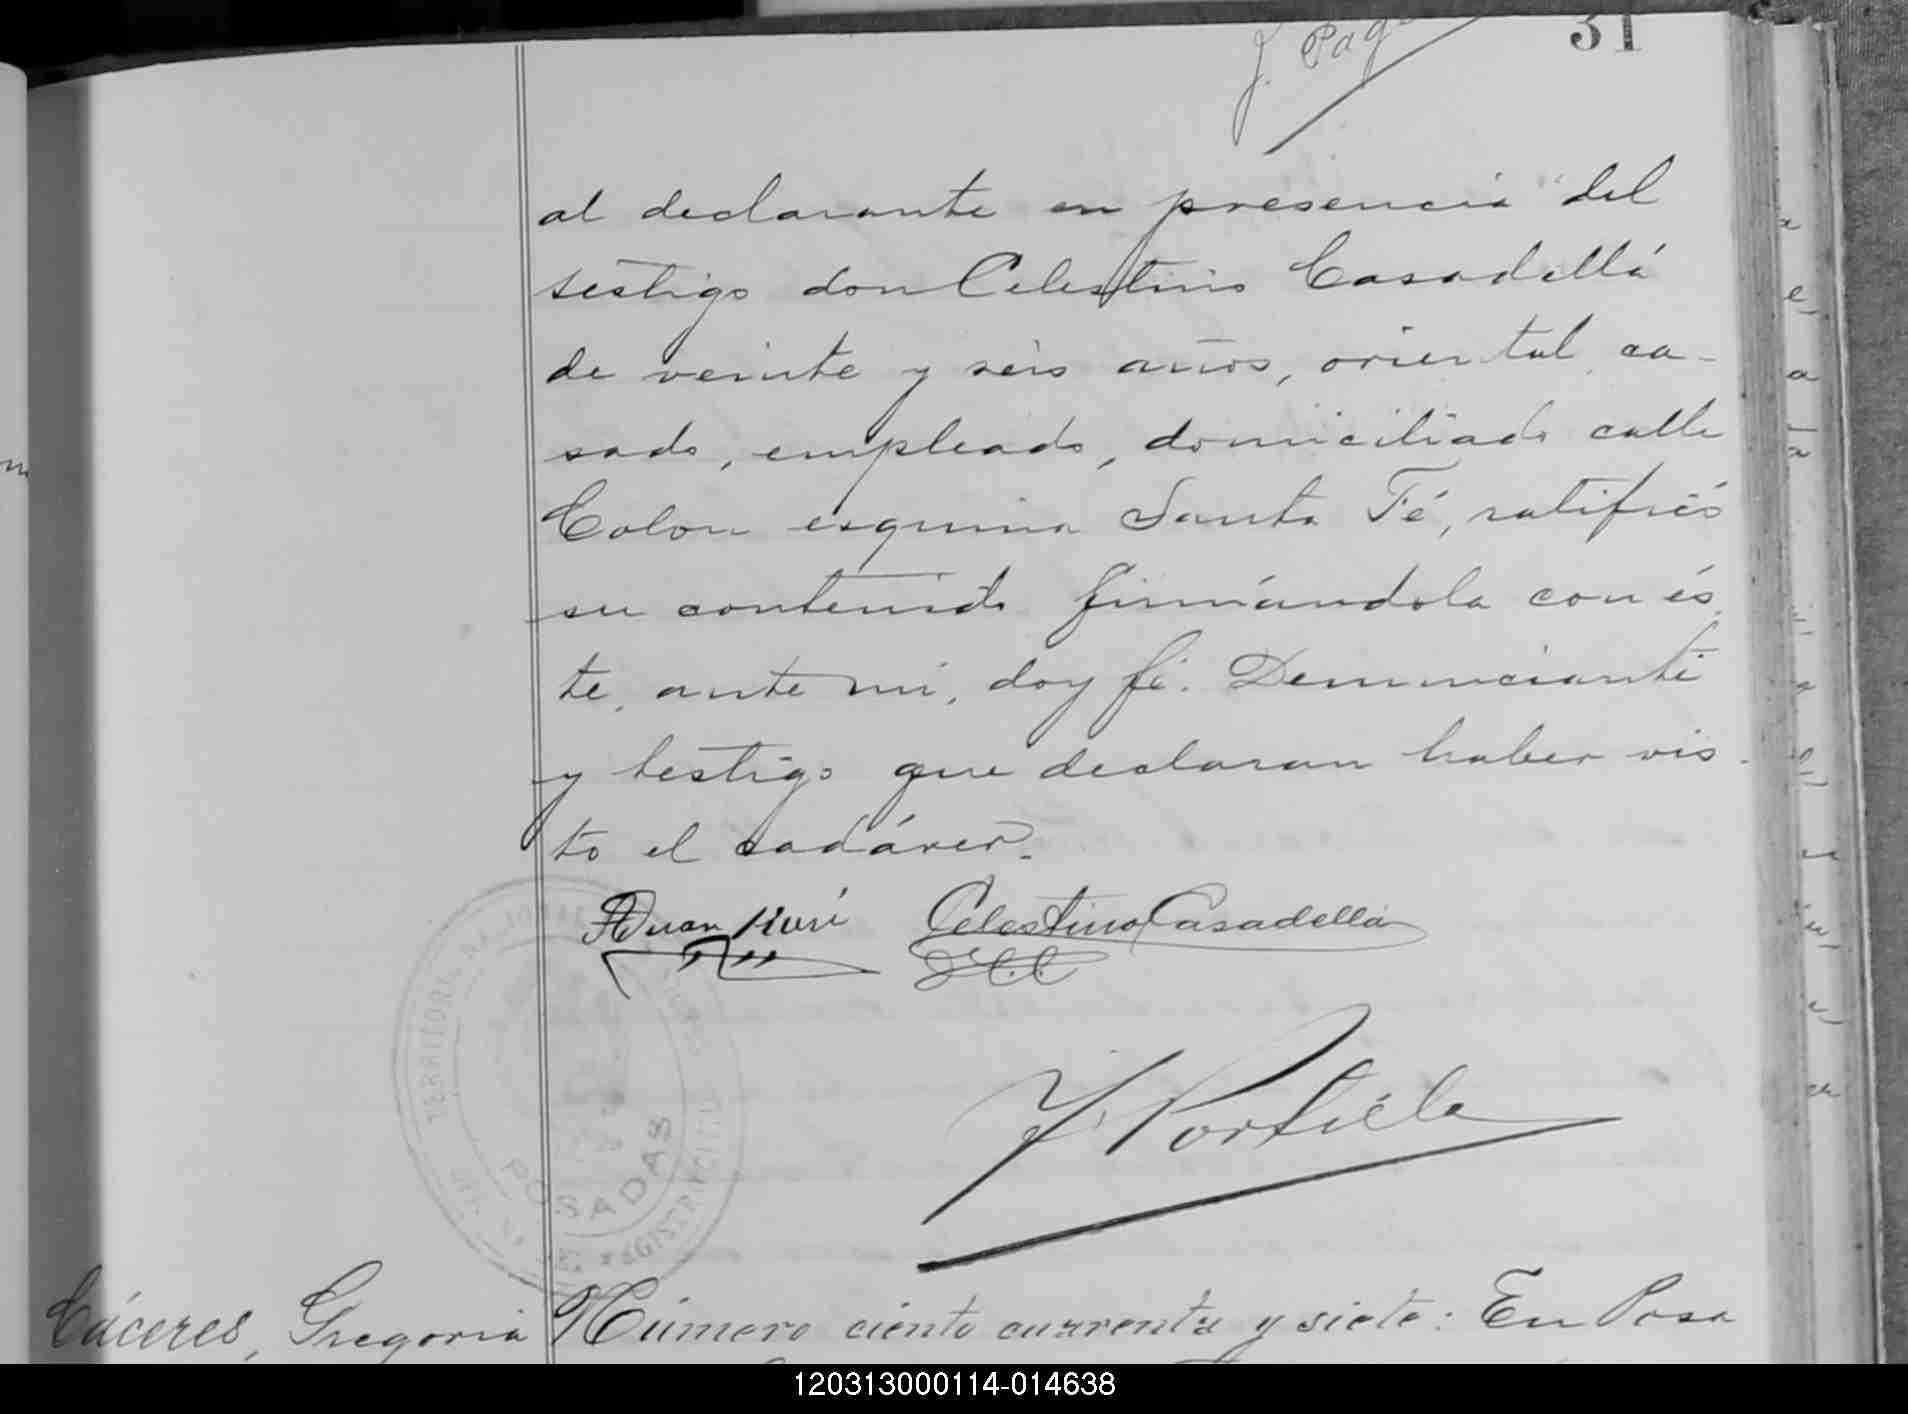 J. Pag
31
al declarante en presencia del
testigo don Celestino Casadellá
de veinte y seis años, oriental, ca-
sado, empleado, domiciliado calle
Colon esquina Santa Fé, ratificó
su contenido firmándola con és
te, ante mi, doy fé. Denunciante
y testigo que declaran haber vis-
to el cadáver.
Juan Celestino Casadellá
J. Portela
TERRITORIO NACIONAL
POSADAS
REGISTRO CIVIL
Cáceres, Gregoria Número ciento cuarenta y siete: En Posa
120313000114-014638